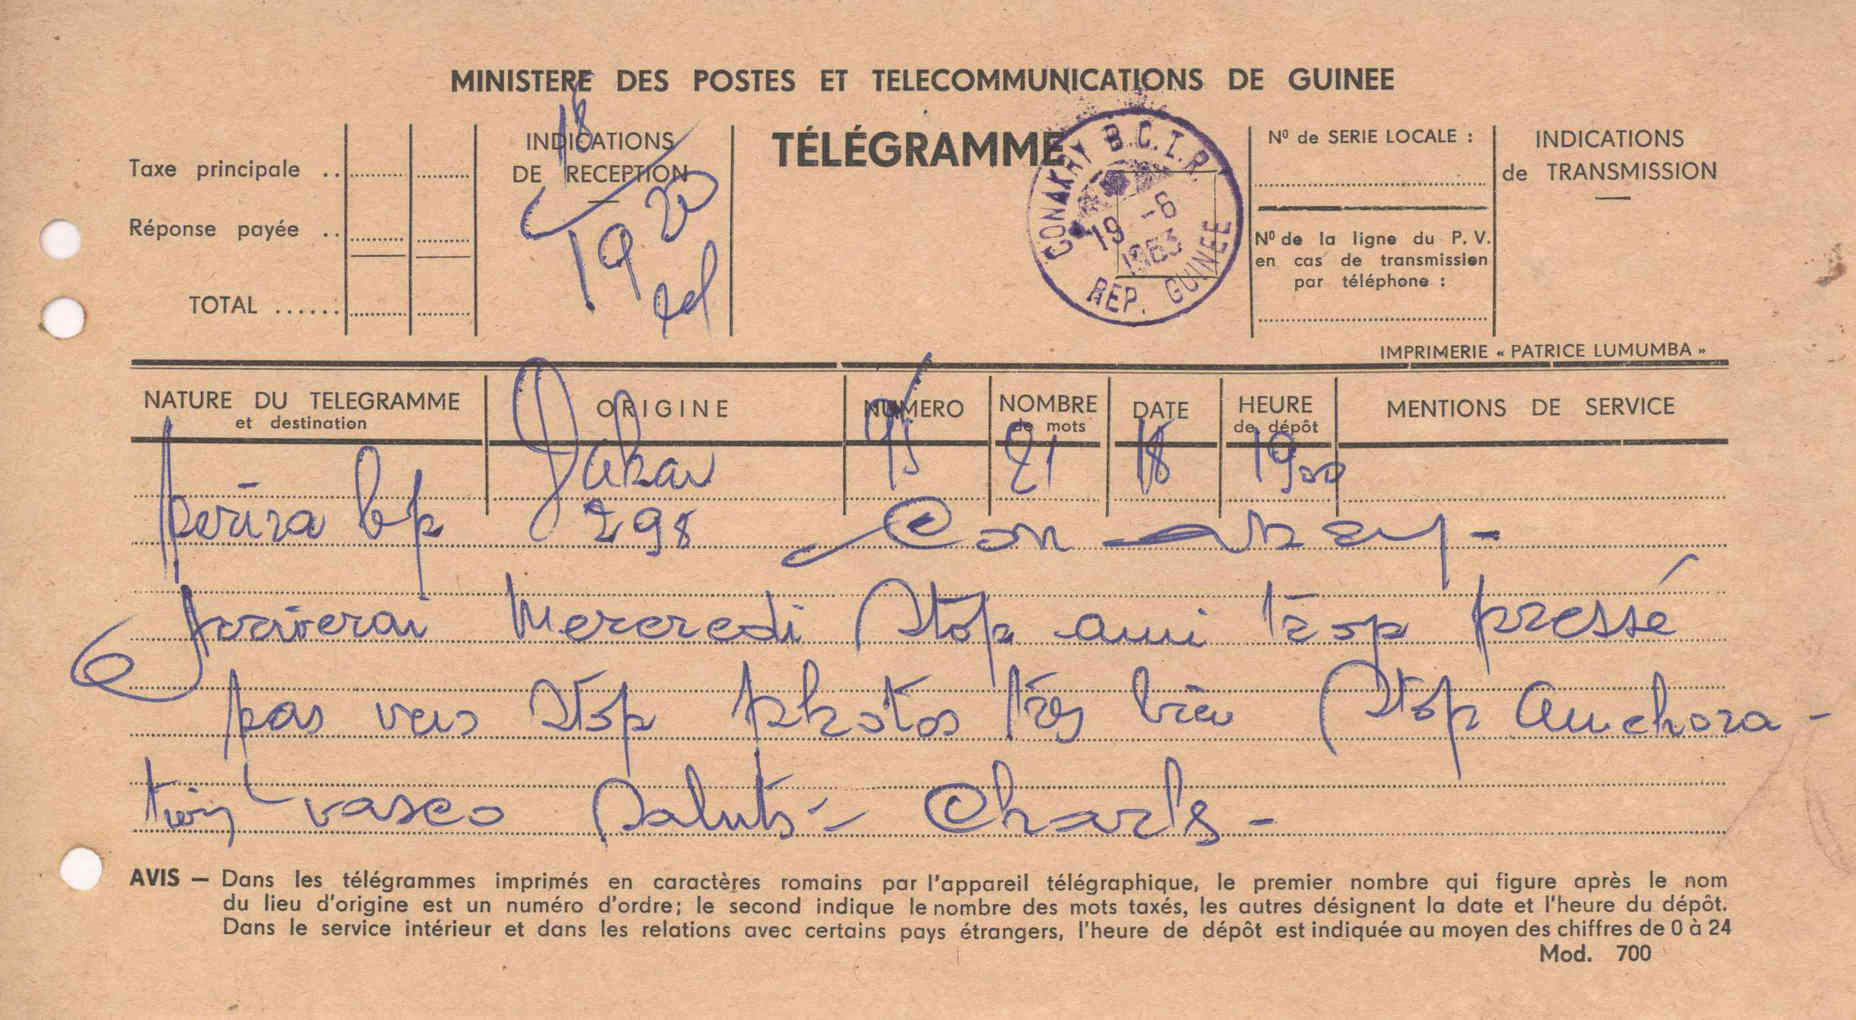 MINISTERE DES POSTES ET TELECOMMUNICATIONS DE GUINEE
Taxe principale ..
Réponse payée ..
TOTAL ......
INDICATIONS
DE RECEPTION
18
19 20
TÉLÉGRAMME
CONAKRY B.C.T.R.
19 -6
1963
REP. GUINEE
Nº de SERIE LOCALE :
Nº de la ligne du P. V.
en cas de transmission
par téléphone :
INDICATIONS
de TRANSMISSION
IMPRIMERIE « PATRICE LUMUMBA »
NATURE DU TELEGRAMME
et destination
ORIGINE
NUMERO
NOMBRE
de mots
DATE
HEURE
de dépôt
MENTIONS DE SERVICE
Dakar 95 21 18 1900
bp 298 Conakry -
Arriverai Mercredi Stop ami trop pressé
pas vers Stop photos très bien Stop
vasco Saluts - Charls -
AVIS — Dans les télégrammes imprimés en caractères romains par l'appareil télégraphique, le premier nombre qui figure après le nom
du lieu d'origine est un numéro d'ordre; le second indique le nombre des mots taxés, les autres désignent la date et l'heure du dépôt.
Dans le service intérieur et dans les relations avec certains pays étrangers, l'heure de dépôt est indiquée au moyen des chiffres de 0 à 24
Mod. 700